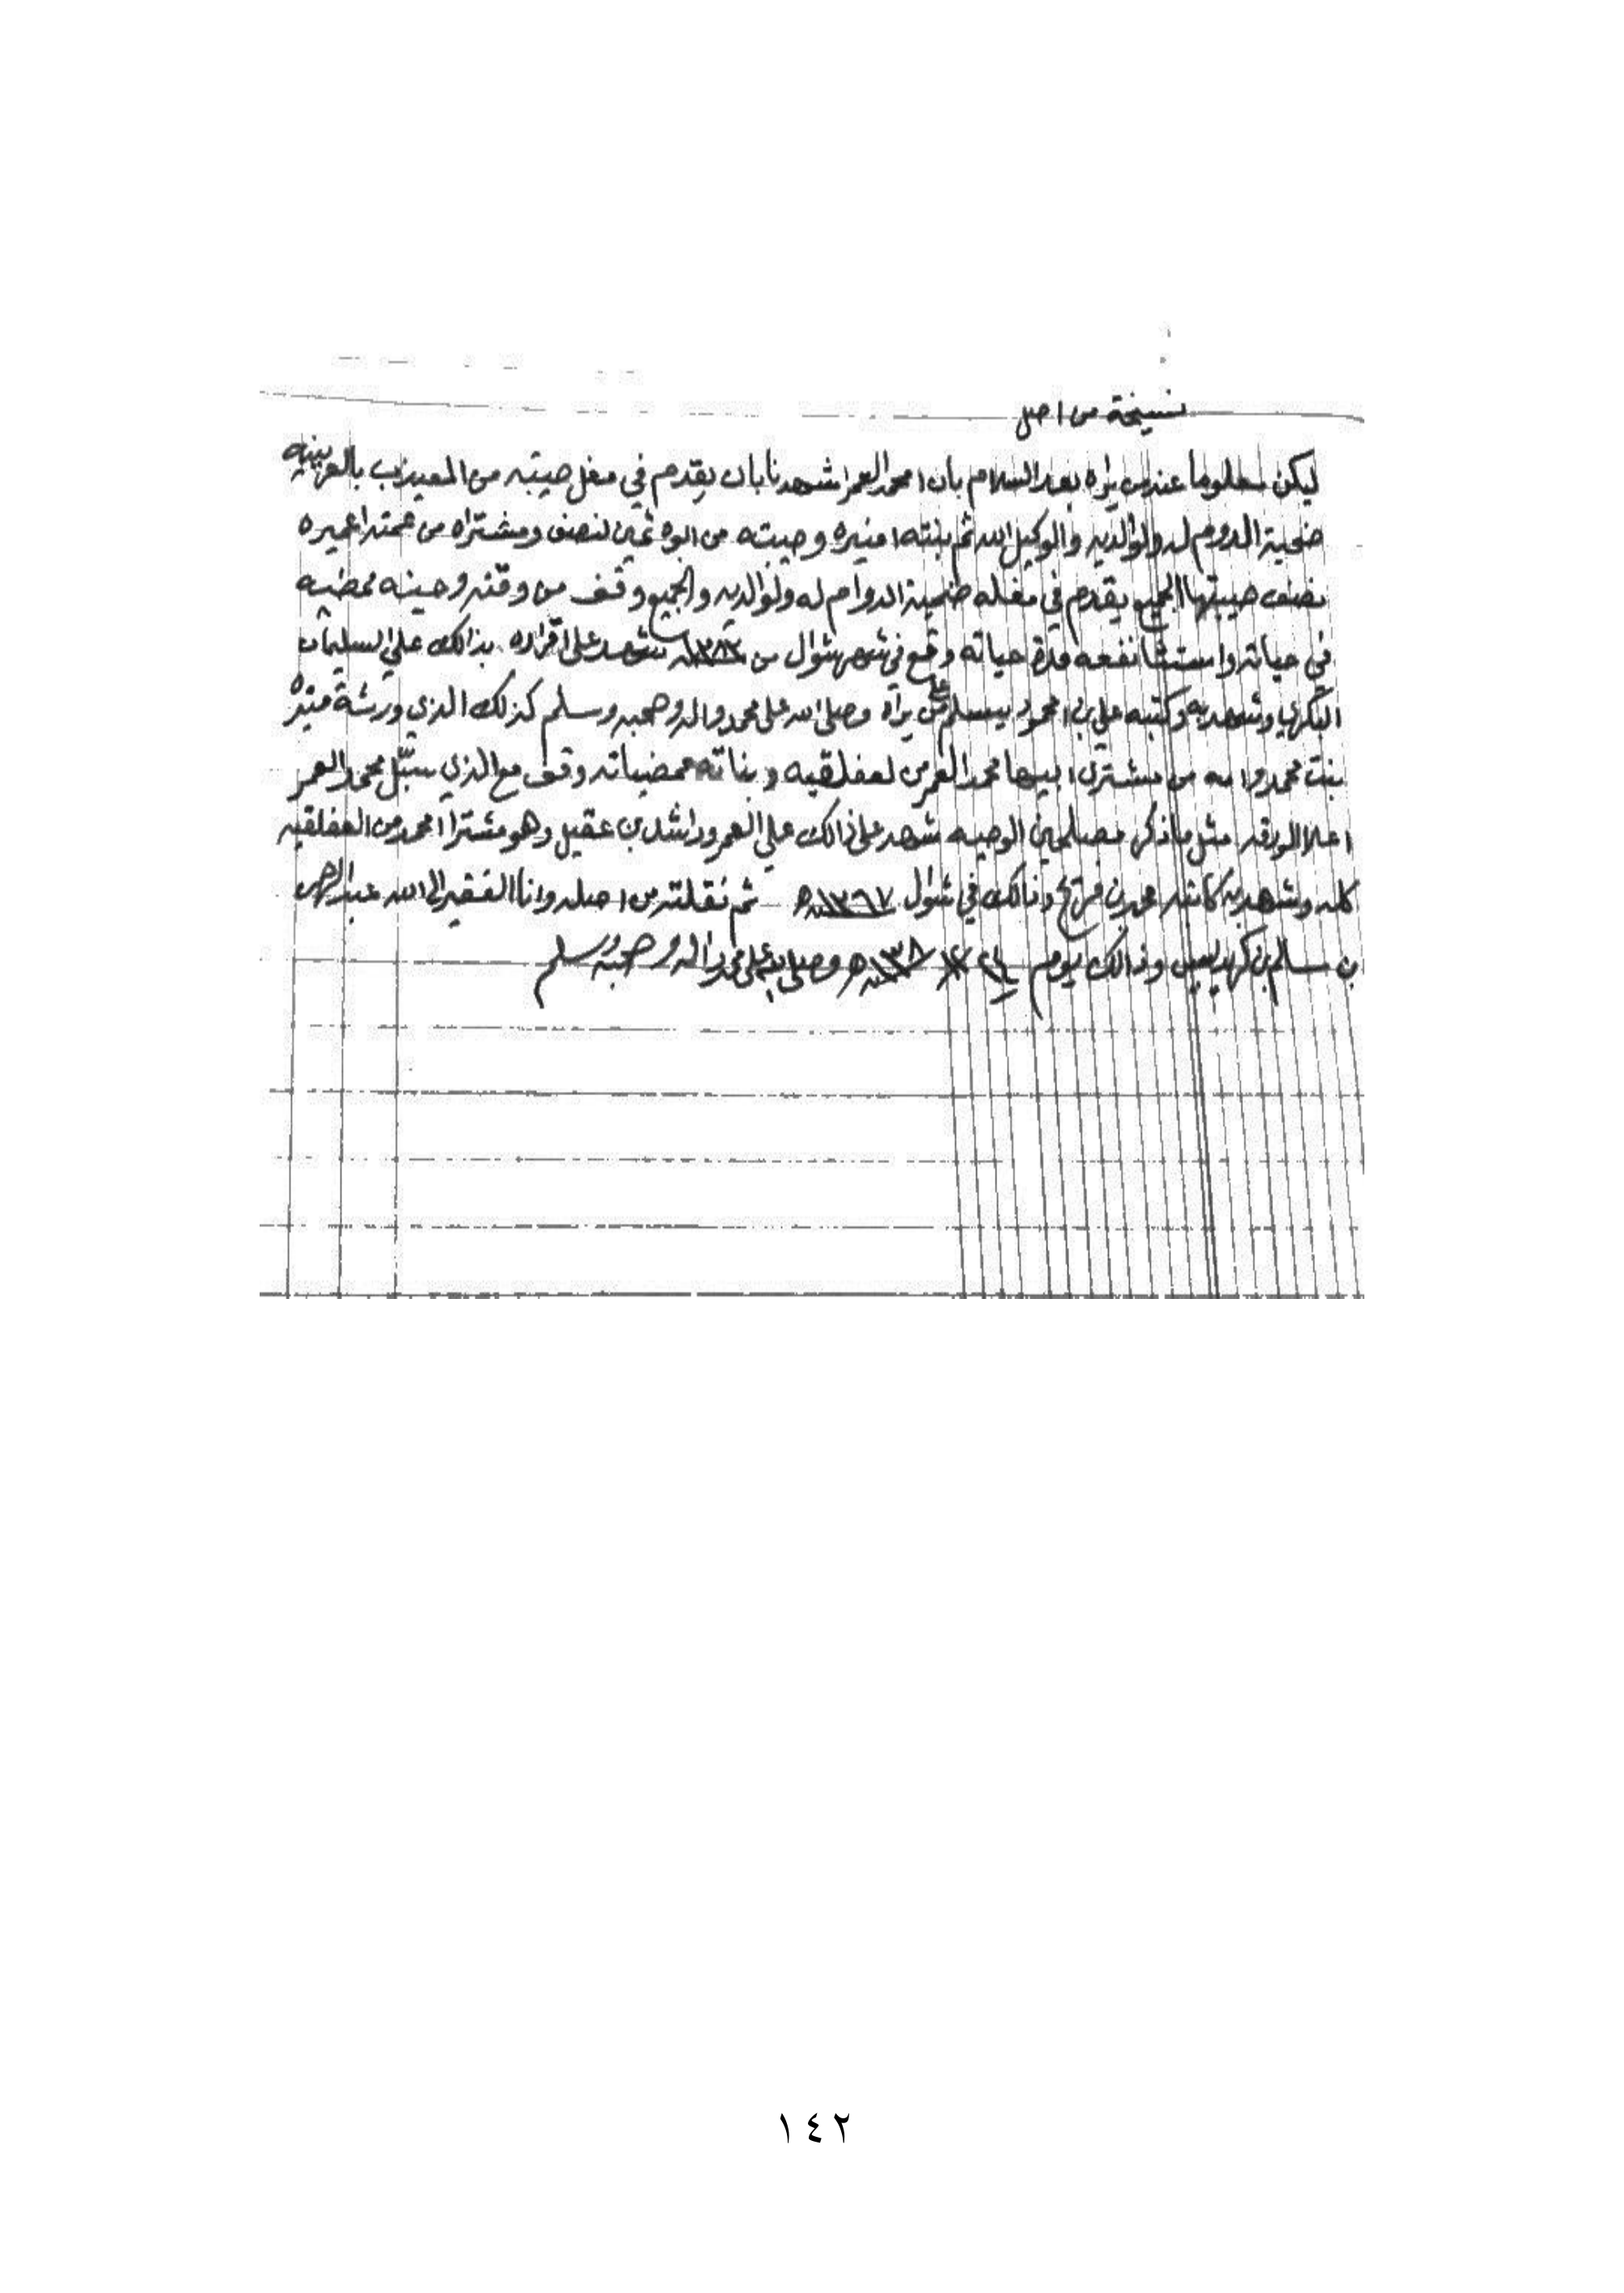 نسخة من اصل
ليكن معلوما عند من يراه بعد السلام بان امحمد العمر اشهدنا بان يقدم في مغل صيبته من المعيذب بالعرينيه
ضحية الدوم له ولوالديه والوكيل الله ثم بنته امنيره وصيبته من ابوه ثمين لنصف ومشتراه من عمتها عميره
نصف صيبتها الجميع يقدم في مغله ضحية الدوام له ولوالديه والجميع وقف من وقته وحينه ممضيه
في حياته واستثنا نفعه مدة حياته وقع في شهر شوال من شهد على اقراره بذالك علي السليمان
البكري وشهد به وكتبه علي بن امحمود يسلم على من يراه وصلى الله على محمد واله وصحبه وسلم كذلك الذي ورثة منيره
بنت محمد وامه من مشترى ابيها محمد العمر من لعفلقيه وبناته ممضياته وقف مع الذي سبّل محمد العمر
اعلا الورقه مثل ما ذكر مصلحين الوصيه شهد على ذالك علي العمر وراشد بن عقيل وهو مشترا امحمد من العفلقيه
كله وشهد به كاتبه محمد بن وذالك في شوال ١٣٦٧هـ ثم نقلته من اصله وانا الفقير الى الله عبدالرحمن
بن سالم بن وذالك يوم وصلى الله على محمد واله وصحبه وسلم
١٤٢